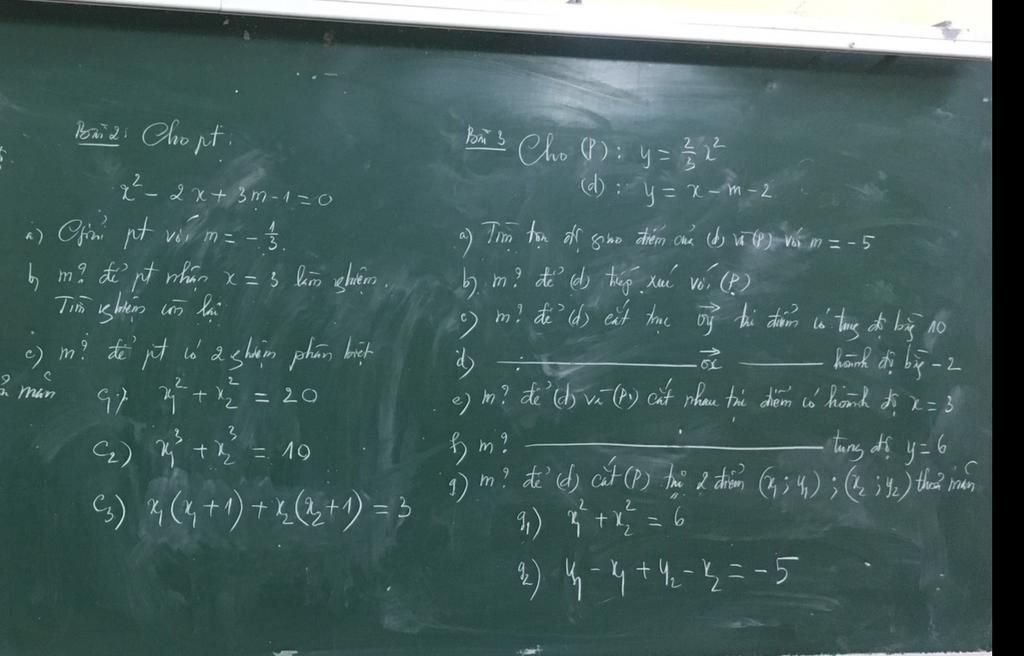 Bài 2: Cho pt:
x² - 2x + 3m - 1 = 0
a) Giải pt với m = -1/3.
b) m? để pt nhận x = 3 làm nghiệm.
Tìm nghiệm còn lại
c) m? để pt có 2 nghiệm phân biệt
mãn
C₁) x₁² + x₂² = 20
C₂) x₁³ + x₂³ = 10
C₃) x₁(x₁+1) + x₂(x₂+1) = 3
Bài 3 Cho (P): y = 2/3 x²
(d): y = x - m - 2
a) Tìm tọa độ giao điểm của (d) và (P) với m = -5
b) m? để (d) tiếp xúc với (P)
c) m? để (d) cắt trục Oy tại điểm có tung độ bằng 10
d) ———— Ox ———— hoành độ bằng -2
e) m? để (d) và (P) cắt nhau tại điểm có hoành độ x = 3
f) m? ———— tung độ y = 6
g) m? để (d) cắt (P) tại 2 điểm (x₁; y₁); (x₂; y₂) thoả mãn
g₁) x₁² + x₂² = 6
g₂) y₁ - x₁ + y₂ - x₂ = -5